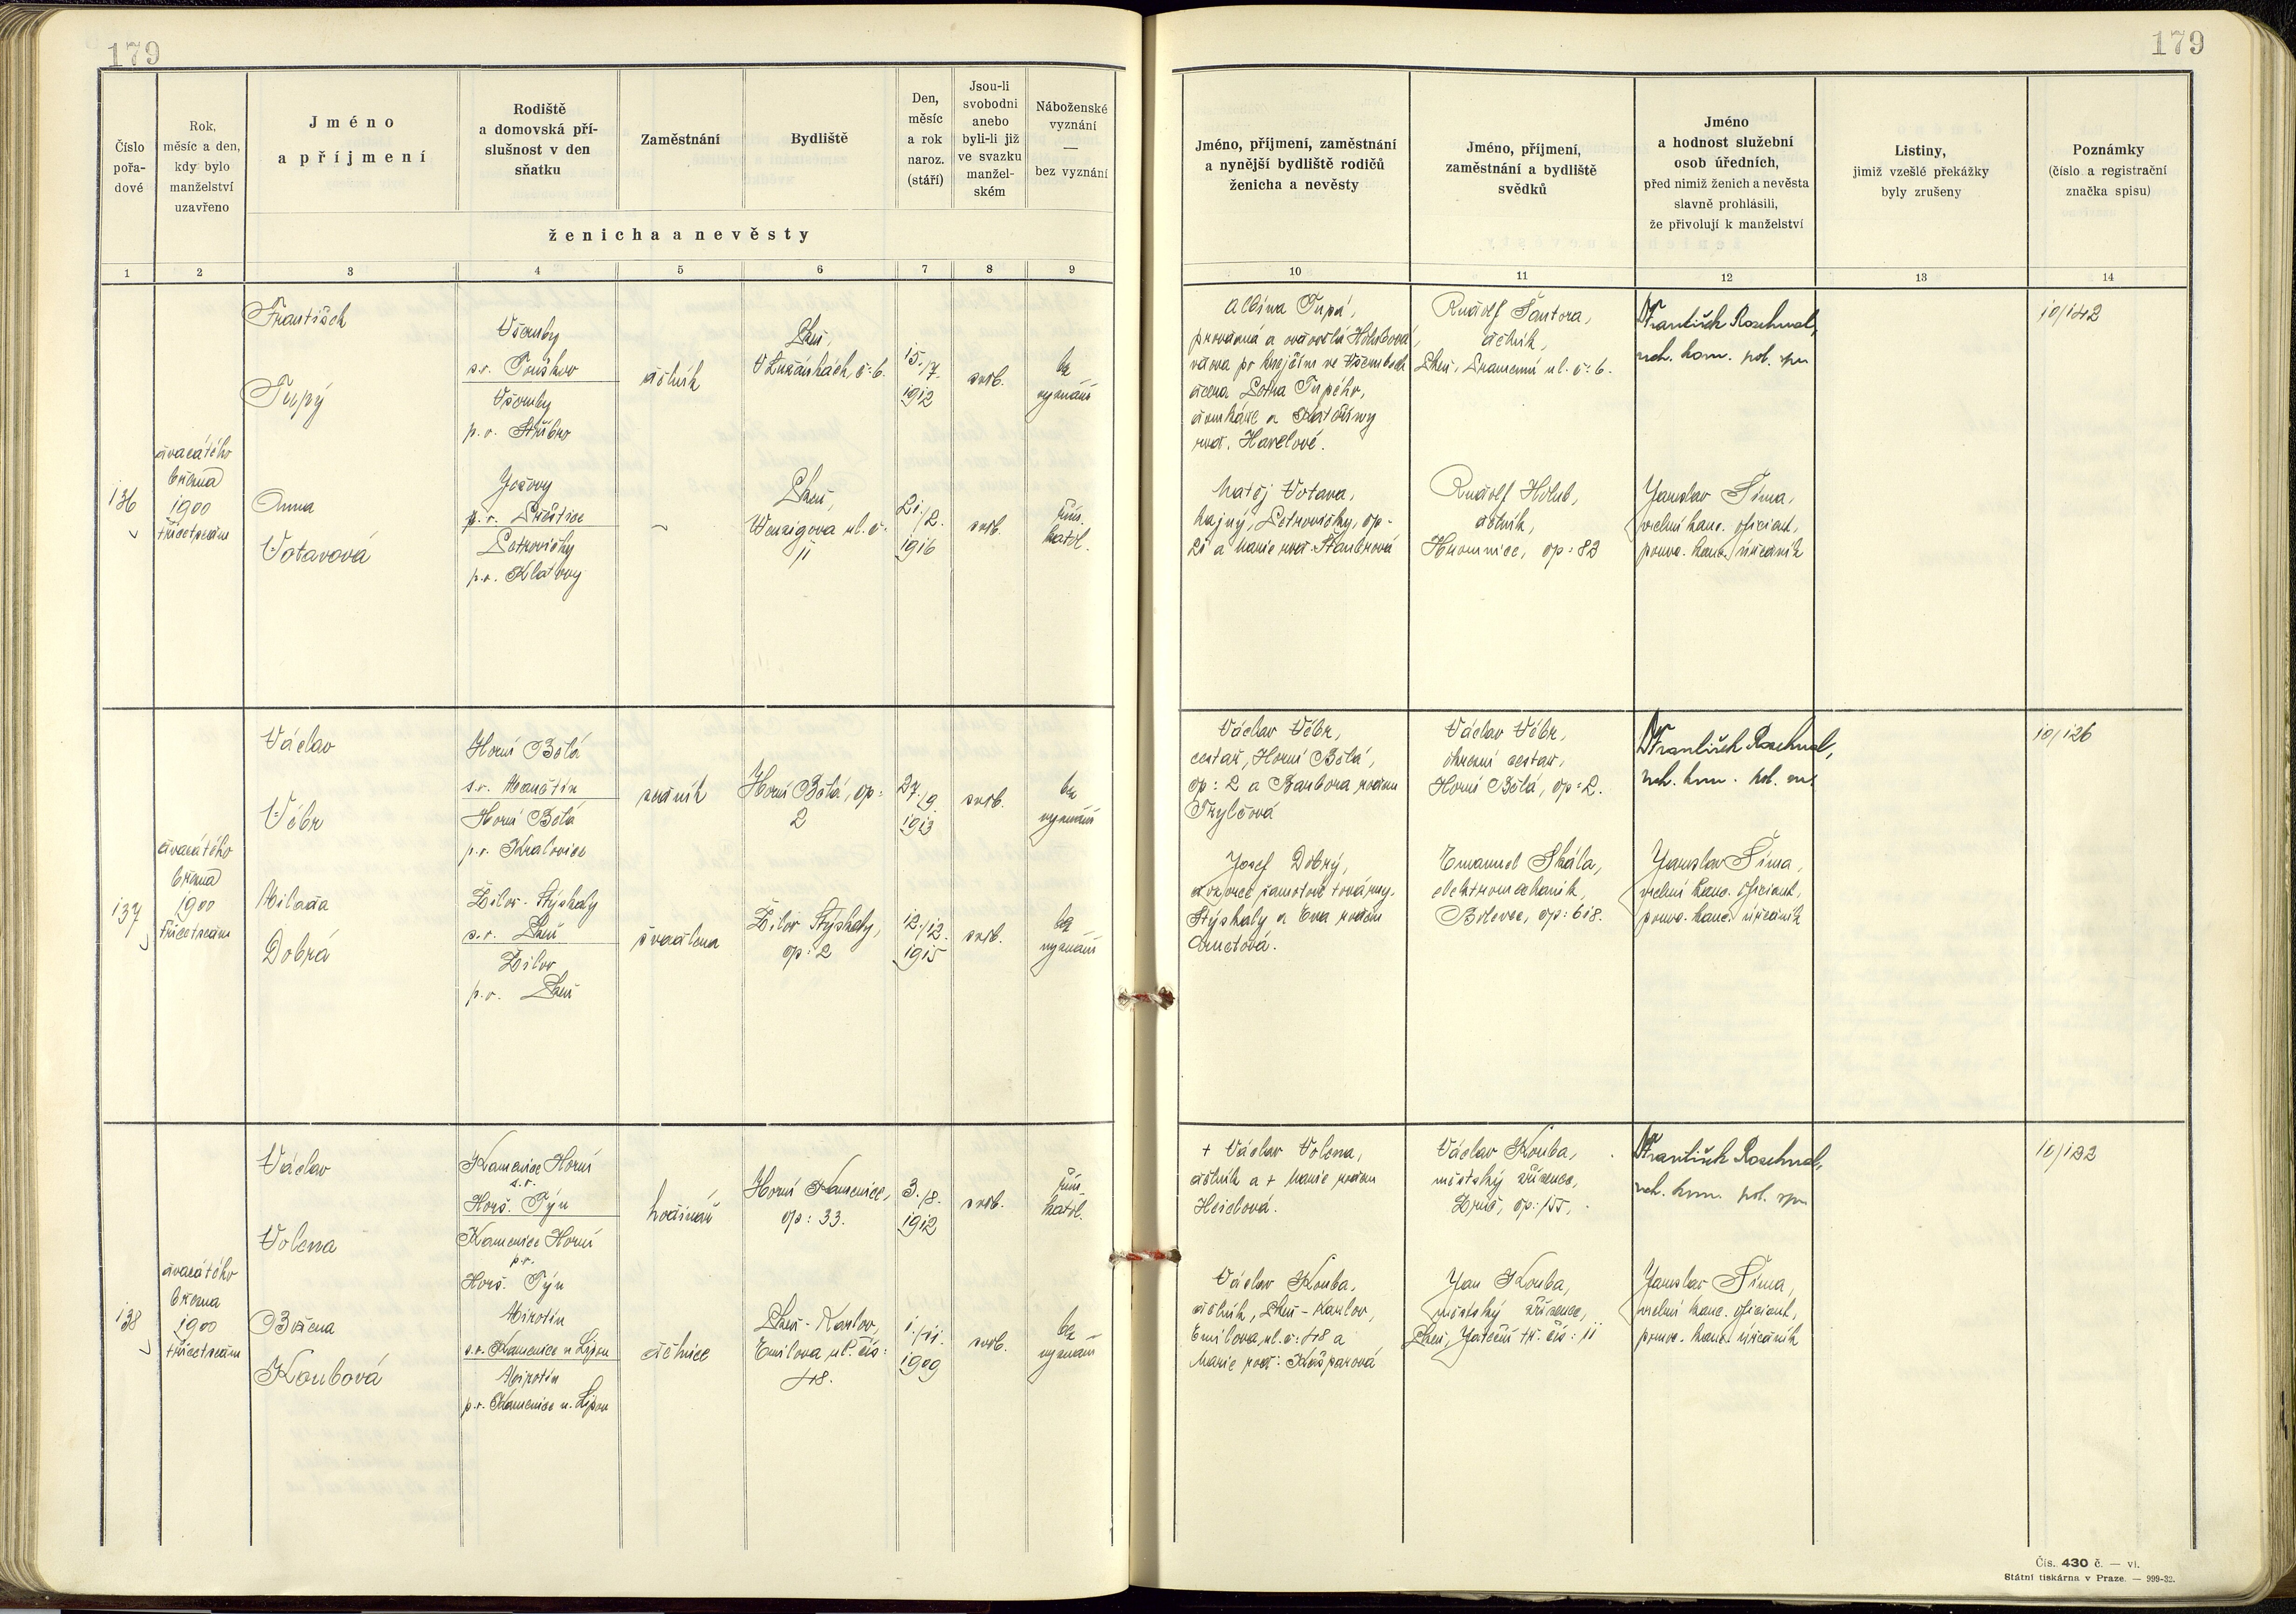 179
179
Číslo
pořa-
dové
Rok,
měsíc a den,
kdy bylo
manželství
uzavřeno
Jméno
a příjmení
Rodiště
a domovská pří-
slušnost v den
sňatku
Zaměstnání
Bydliště
Den,
měsíc
a rok
naroz.
(stáří)
Jsou-li
svobodni
anebo
byli-li již
ve svazku
manžel-
ském
Náboženské
vyznání
—
bez vyznání
ženicha a nevěsty
Jméno, příjmení, zaměstnání
a nynější bydliště rodičů
ženicha a nevěsty
Jméno, příjmení,
zaměstnání a bydliště
svědků
Jméno
a hodnost služební
osob úředních,
před nimiž ženich a nevěsta
slavně prohlásili,
že přivolují k manželství
Listiny,
jimiž vzešlé překážky
byly zrušeny
Poznámky
(číslo a registrační
značka spisu)
1 2 3 4 5 6 7 8 9 10 11 12 13 14
136
dvacátého
března
1900
třicetosm
František
Tupý
Všeruby
s.r. Touškov
Všeruby
p.o. Stříbro
dělník
Plzeň,
V Lukáškách, č: 6.
15./7.
1912
svob.
bez
vyznání
Albína Tupá,
provdaná a ovdovělá Holubová,
vdova po krejčím ve Všerubech
dcera Petra Tupého,
domkáře a Kateřiny
roz. Havlové.
Rudolf Šantora,
dělník,
Plzeň, ul. č: 6.
Dr František
rch. kom. pol. spr
10/142
Anna
Votavová
Ježovy
p.o. Přeštice
Petrovičky
p.o. Klatovy
~
Plzeň,
Wenzigova ul. č:
11
21./2.
1916
svob.
řím.
katol.
Matěj Votava,
hajný, Petrovičky, čp:
21 a Marie roz. Stauberová
Rudolf Holub,
dělník,
Hromnice, čp: 83
Jaroslav Šíma,
vrchní kanc. oficiant,
pomoc. kanc. úředník
137
dvacátého
března
1900
třicetosm
Václav
Vébr
Horní Bělá
s.r. Manětín
Horní Bělá
p.o. Kralovice
zedník
Horní Bělá, čp:
2
27./9.
1913
svob.
bez
vyznání
Václav Vébr,
cestář, Horní Bělá,
čp: 2 a Barbora rodem
Trylčová
Václav Vébr,
okresní cestář,
Horní Bělá, čp: 2.
Dr František
rch. kom. pol. spr
10/126
Milada
Dobrá
Žilov - Stýskaly
s.r. Plzeň
Žilov
p.o. Plzeň
švadlena
Žilov Stýskaly,
čp: 2
12./12.
1915
svob.
bez
vyznání
Josef Dobrý,
dozorce šamotové továrny,
Stýskaly a Eva rodem
Arnetová.
Emanuel Skála,
elektromechanik,
Bolevec, čp: 618.
Jaroslav Šíma,
vrchní kanc. oficiant,
pomoc. kanc. úředník
138
dvacátého
března
1900
třicetosm
Václav
Volena
Kamenice Horní
s.r.
Horš. Týn
Kamenice Horní
p.o.
Horš. Týn
hodinář
Horní Kamenice,
čp: 33.
3./8.
1912
svob.
řím.
katol.
+ Václav Volena,
dělník a + Marie rodem
Heidlová.
Václav Kouba,
městský zřízenec,
Zruč, čp: 155,
Dr František
rch. kom. pol. spr
10/132
Božena
Koubová
Mirotín
s.r. Kamenice n. Lipou
Mirotín
p.o. Kamenice n. Lipou
dělnice
Plzeň - Karlov,
Emilova ul. čís:
48.
1./11.
1909
svob.
bez
vyznání
Václav Kouba,
dělník, Plzeň - Karlov,
Emilova ul. č: 48 a
Marie roz: Kašparová
Jan Kouba,
městský zřízenec,
Plzeň, Jateční tř. čís: 11
Jaroslav Šíma,
vrchní kanc. oficiant,
pomoc. kanc. úředník
Čís. 430 č. — vi.
Státní tiskárna v Praze. — 999-32.